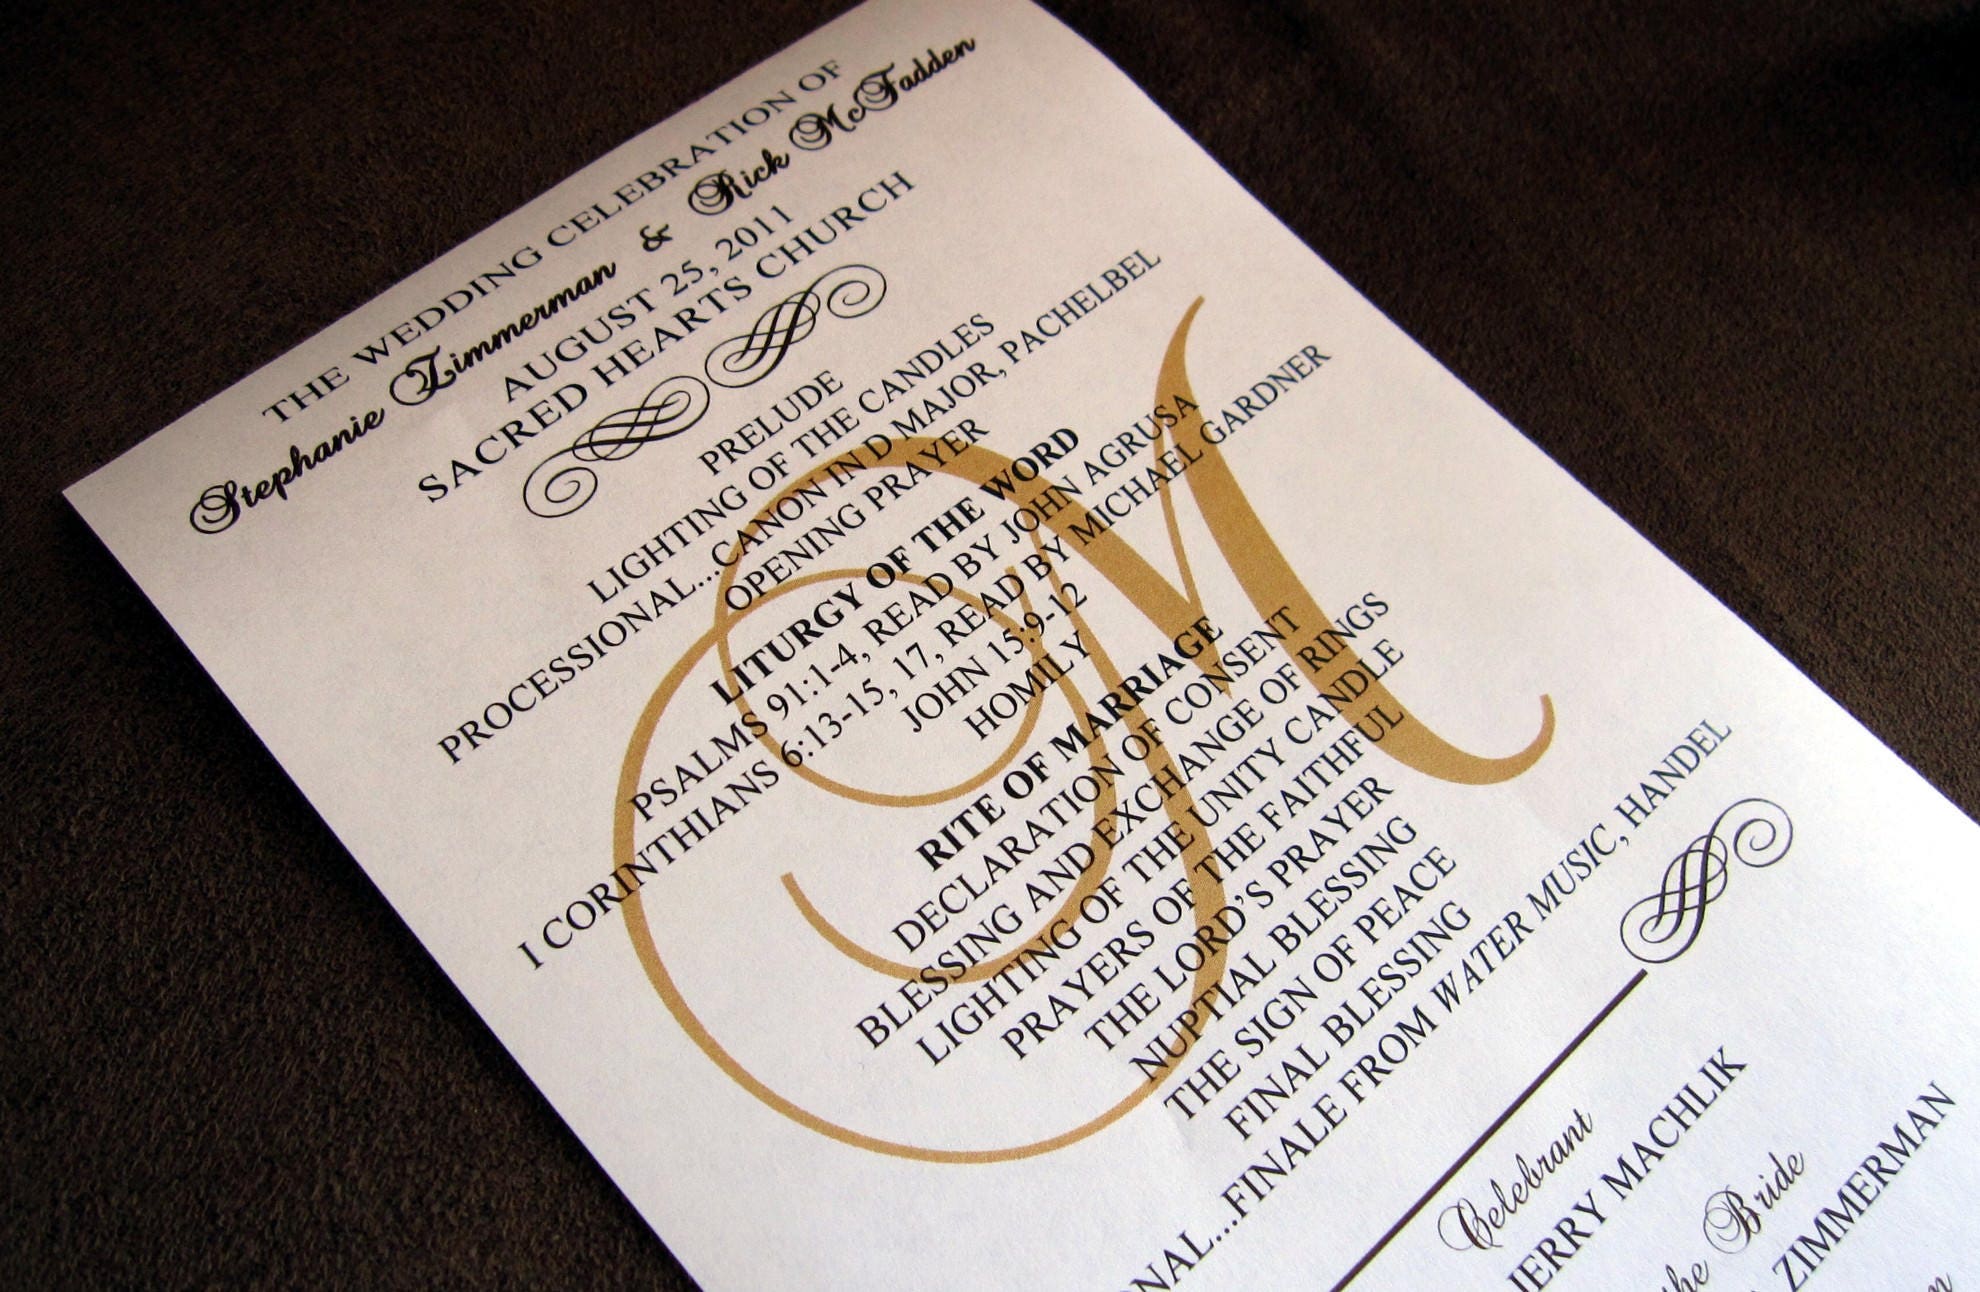 THE WEDDING CELEBRATION OF
Stephanie Zimmerman & Rick McFadden
AUGUST 25, 2011
SACRED HEARTS CHURCH
PRELUDE
LIGHTING OF THE CANDLES
PROCESSIONAL...CANON IN D MAJOR, PACHELBEL
OPENING PRAYER
LITURGY OF THE WORD
PSALMS 91:1-4, READ BY JOHN AGRUSA
I CORINTHIANS 6:13-15, 17, READ BY MICHAEL GARDNER
JOHN 15:9-12
HOMILY
RITE OF MARRIAGE
DECLARATION OF CONSENT
BLESSING AND EXCHANGE OF RINGS
LIGHTING OF THE UNITY CANDLE
PRAYERS OF THE FAITHFUL
THE LORD'S PRAYER
NUPTIAL BLESSING
THE SIGN OF PEACE
FINAL BLESSING
ONAL...FINALE FROM WATER MUSIC, HANDEL
M
Celebrant
JERRY MACHLIK
the Bride
ZIMMERMAN